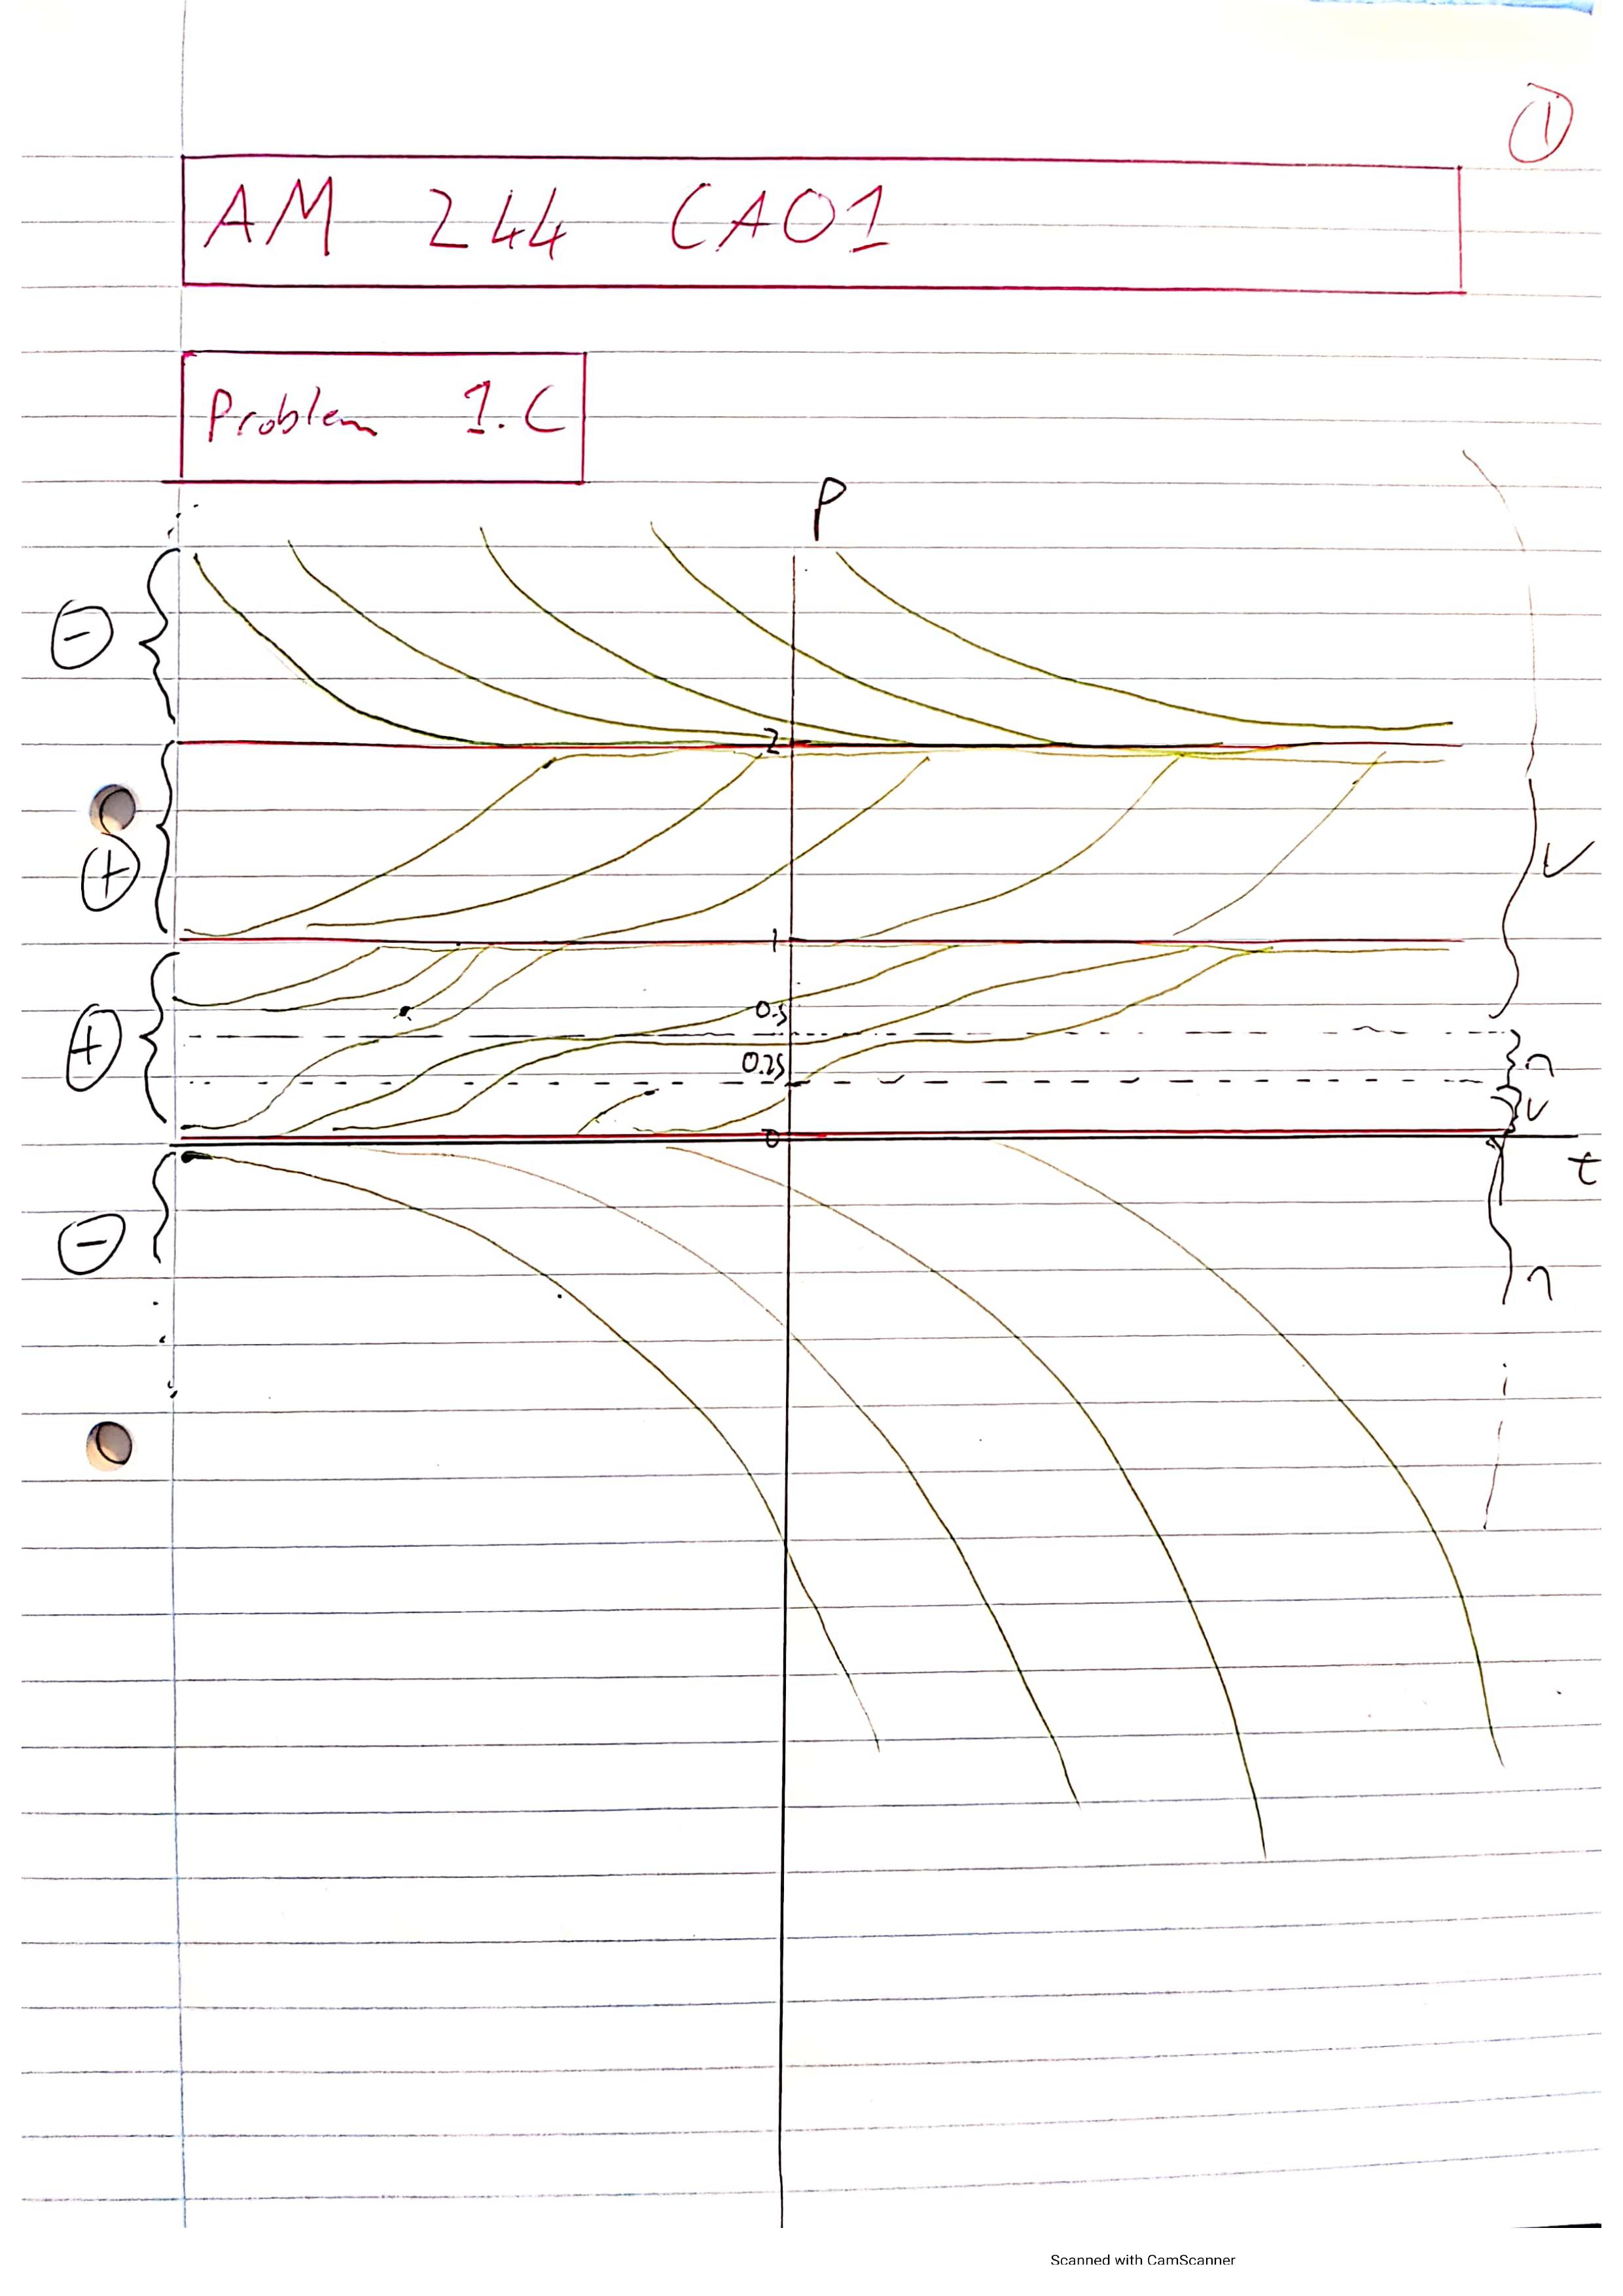 ①
AM 244 CA01
Problem 1.C
P
⊖
2
⊕
∪
1
0.5
⊕
0.25
∩
∪
0
t
⊖
∩
Scanned with CamScanner